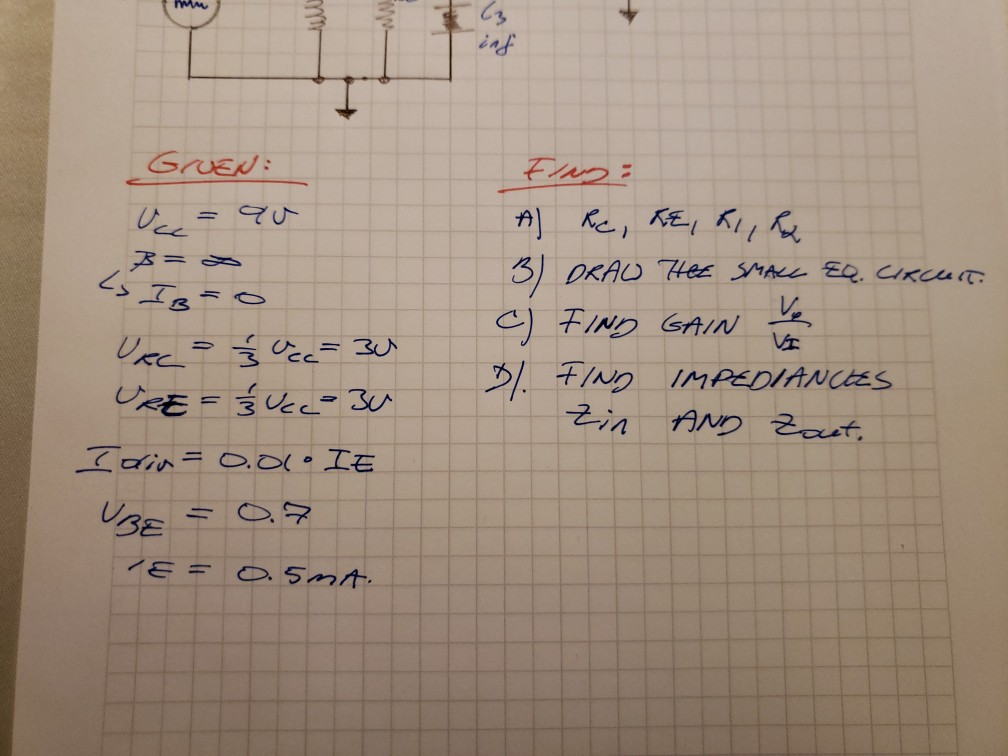 C3
inf
GIVEN:
Vcc = 9V
B = ∞
↳ IB = 0
VRC = 1/3 Vcc = 3V
VRE = 1/3 Vcc = 3V
Idiv = 0.01 · IE
VBE = 0.7
IE = 0.5mA.
FIND:
A) RC, RE, R1, R2
B) DRAW THE SMALL EQ. CIRCUIT.
C) FIND GAIN Vo/VI
D). FIND IMPEDIANCES
Zin AND Zout.